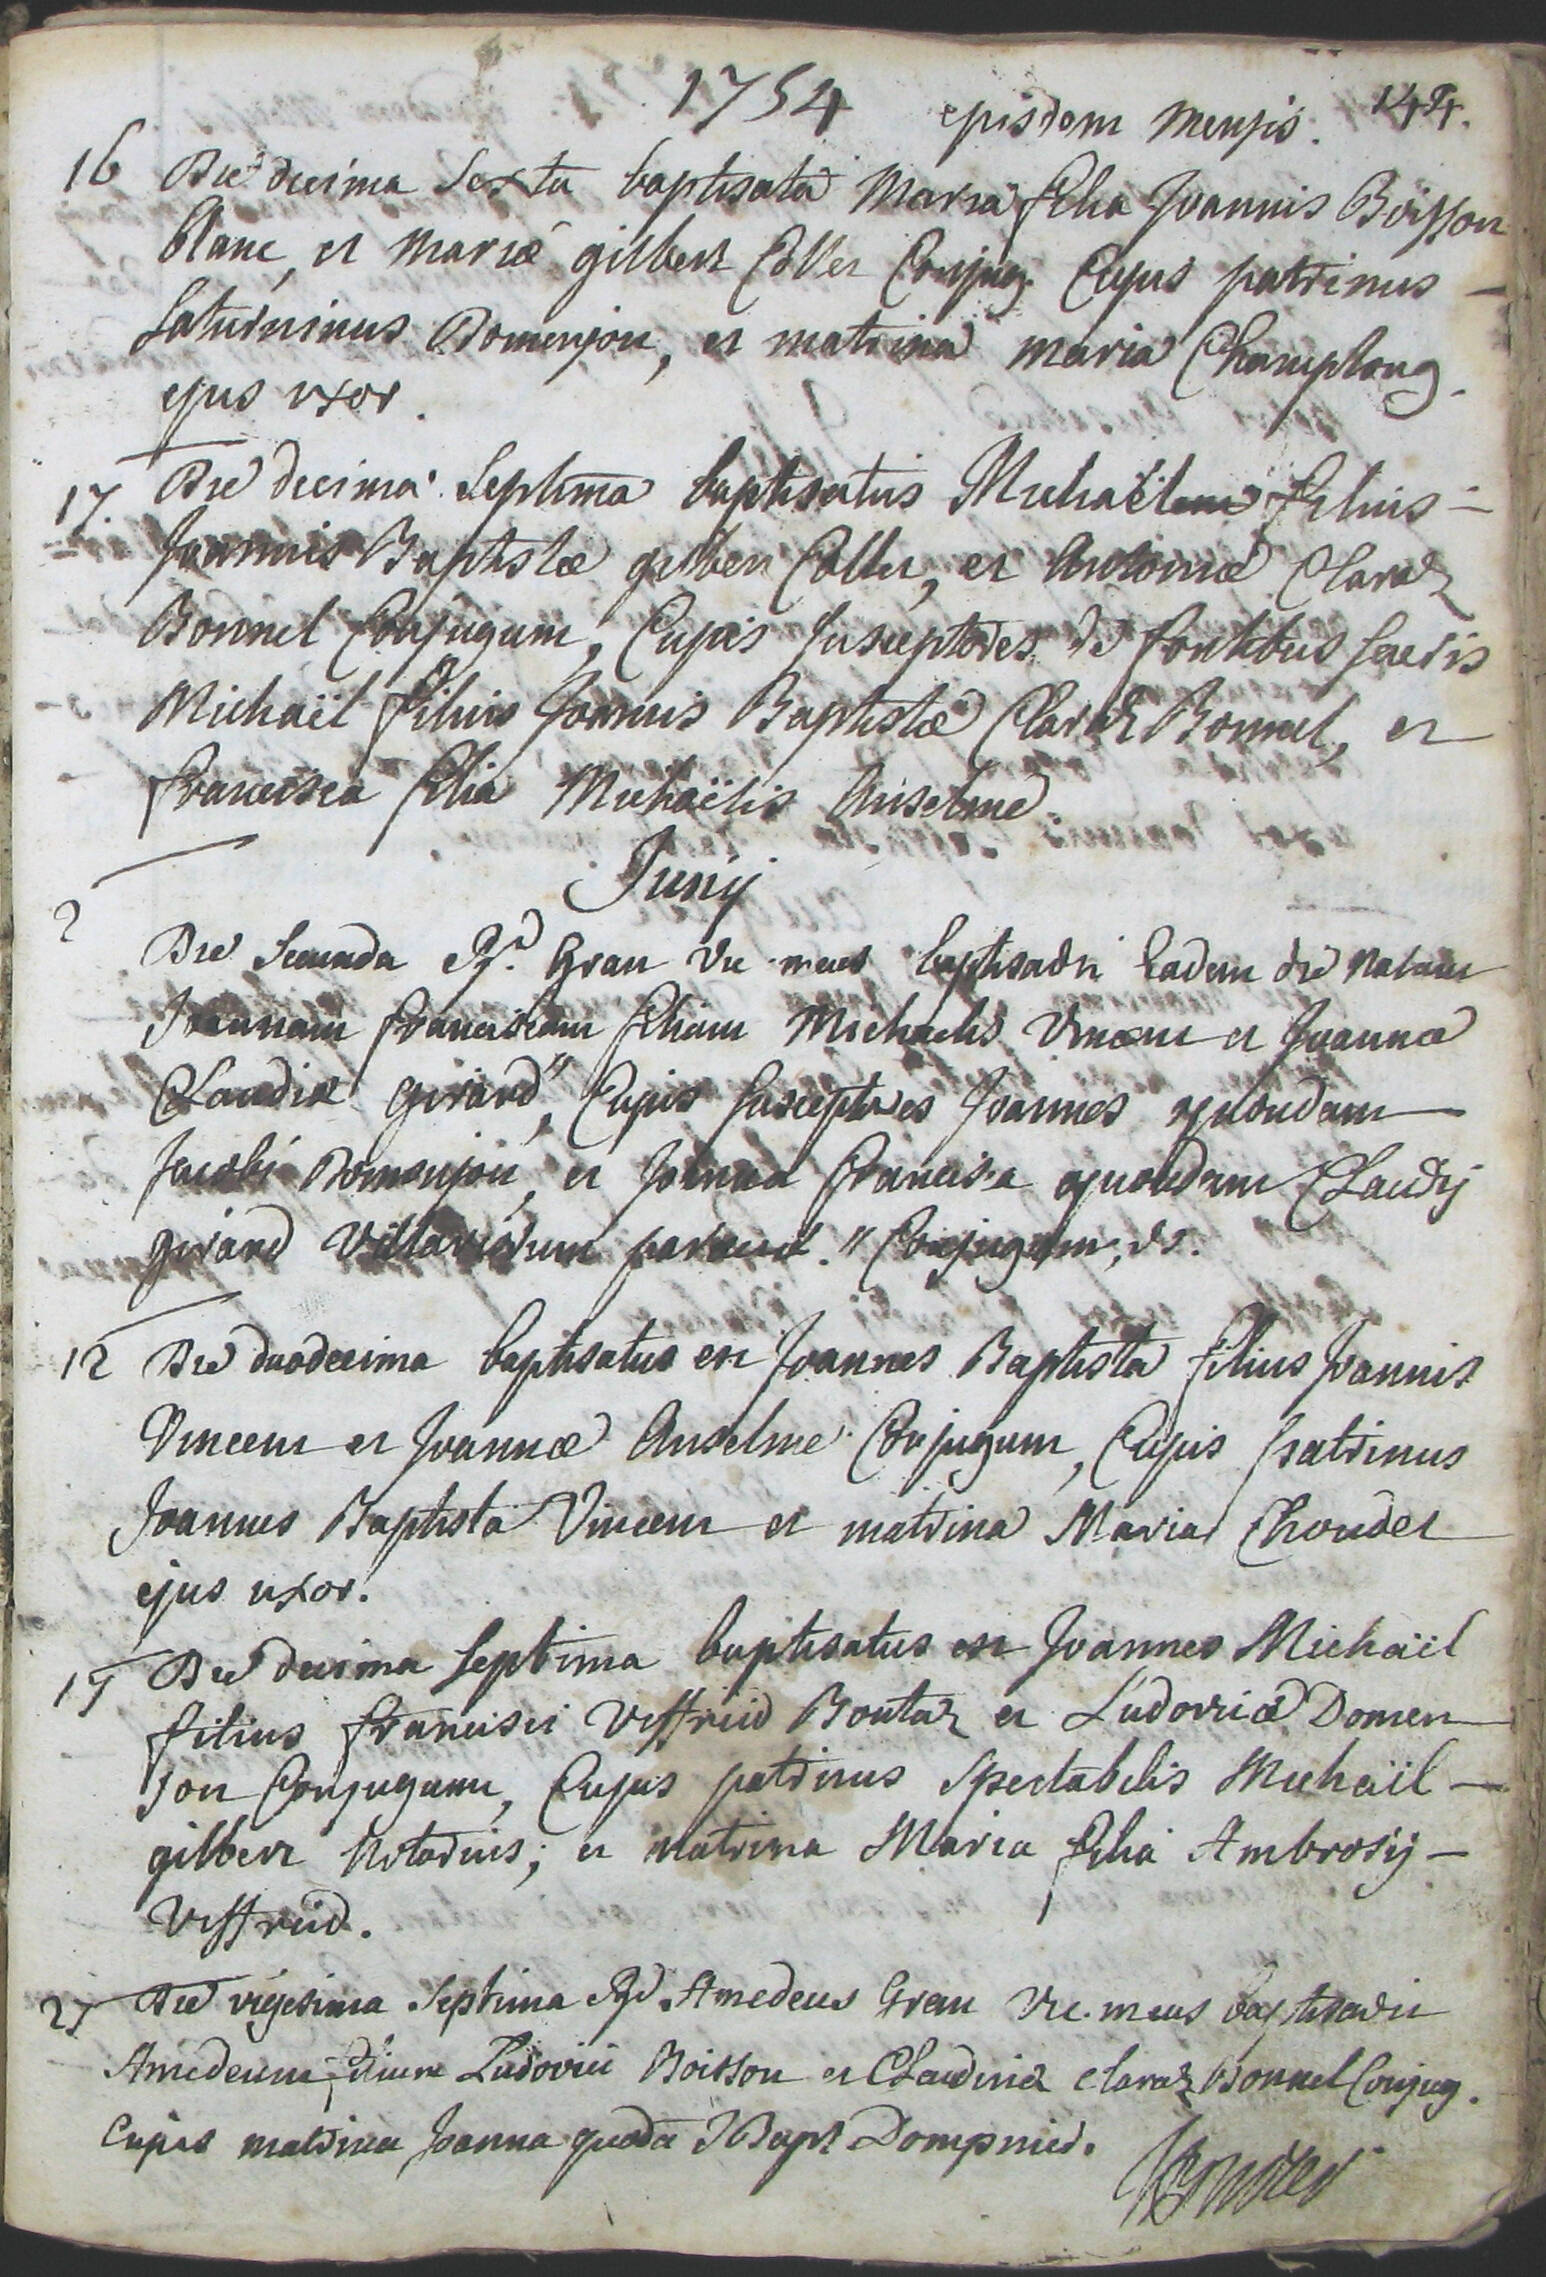 1754 ejusdem mensis. 144.
16 Die decima Sexta baptisata Maria filia Joannis Boisson
blanc, et mariæ gilbert Collet Conjug. Cujus patrinus —
Saturninus Domenjon, et matrina maria Champlong
ejus uxor.
17. Die decima Septima baptisatus Michaël filius —
Joannis Baptistæ gilbert Collet, et Antoniæ Claraz
Bonnel Conjugum, Cujus susceptores de fontibus sacris
Michaël filius Joannis Baptistæ Claraz Bonnel, et
francisca filia Michaëlis Anselme.
Junij
2 Die Secunda Rd. Grau Vic. meus baptisavit Eadem die natam
Joannam franciscam filiam Michaelis Vincent et Joannæ
Claudiæ girard", Cujus susceptores Joannes quondam
Jacobi Domenjon, et Joanna francisca quondam Claudij
girard Villariorum parrochiæ. " Conjugum, vs.
12 Die duodecima baptisatus est Joannes Baptista filius Joannis
Vincent et Joannæ Anselme Conjugum, Cujus patrinus
Joannes Baptista Vincent et matrina Maria Choudet
ejus uxor.
17 Die decima Septima baptisatus est Joannes Michaël
filius francisci Viffreid Boutaz et Ludovicæ Domen
jon Conjugum, Cujus patrinus Spectabilis Michaël —
gilbert Notarius; et matrina Maria filia Ambrosij —
Viffreid.
27 Die vigesima Septima Rd. Amedeus Grau Vic. meus baptisavit
Amedeum filium Ludovici Boisson et Claudinæ Claraz Bonnel Conjug.
Cujus matrina Joanna quōda J Bapt Dompnier.